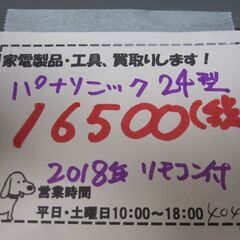 家電製品・工具、買取りします！
パナソニック 24型
16500(税
2018年 リモコン付
営業時間
平日・土曜日10:00～18:00